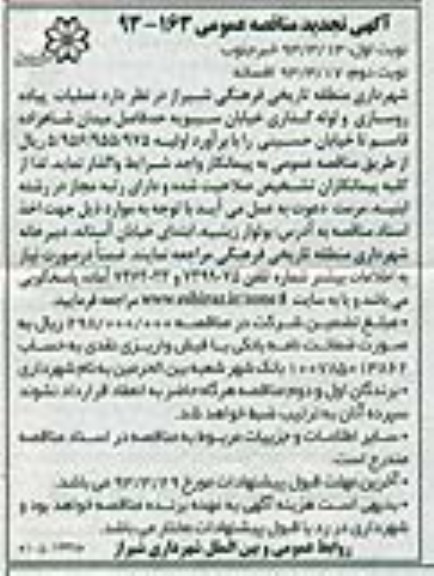 آگهی تجدید مناقصه عمومی ۱۶۳-۹۳
نوبت اول: ۹۳/۳/۱۳ خبرجنوب
نوبت دوم: ۹۳/۳/۱۷ افسانه
شهرداری منطقه تاریخی فرهنگی شیراز در نظر دارد عملیات پیاده
روسازی و لوله گذاری خیابان سیبویه حدفاصل میدان شاهزاده
قاسم تا خیابان حسینی را با برآورد اولیه ۵/۹۵۶/۹۵۵/۹۷۵ ریال
از طریق مناقصه عمومی به پیمانکار واجد شرایط واگذار نماید. لذا از
کلیه پیمانکاران تشخیص صلاحیت شده و دارای رتبه مجاز در رشته
ابنیه، دعوت به عمل می آید با توجه به موارد ذیل جهت اخذ
اسناد مناقصه به آدرس: بولوار زینبیه، ابتدای خیابان آستانه، دبیرخانه
شهرداری منطقه تاریخی فرهنگی مراجعه نمایند. ضمناً درصورت نیاز
به اطلاعات بیشتر شماره تلفن و آماده پاسخگویی
می باشد و یا به سایت مراجعه فرمایید.
• مبلغ تضمین شرکت در مناقصه ۲۹۸/۰۰۰/۰۰۰ ریال به
صورت ضمانت نامه بانکی یا فیش واریزی نقدی به حساب
۱۰۰۷۸۵۰۱۳۸۶۲ بانک شهر شعبه بین الحرمین به نام شهرداری
• برندگان اول و دوم مناقصه هرگاه حاضر به انعقاد قرارداد نشوند
سپرده آنان به ترتیب ضبط خواهد شد.
• سایر اطلاعات و جزییات مربوط به مناقصه در اسناد مناقصه
مندرج است.
• آخرین مهلت قبول پیشنهادات مورخ ۹۳/۳/۲۹ می باشد.
• بدیهی است هزینه آگهی به عهده برنده مناقصه خواهد بود و
شهرداری در رد یا قبول پیشنهادات مختار می باشد.
روابط عمومی و بین الملل شهرداری شیراز